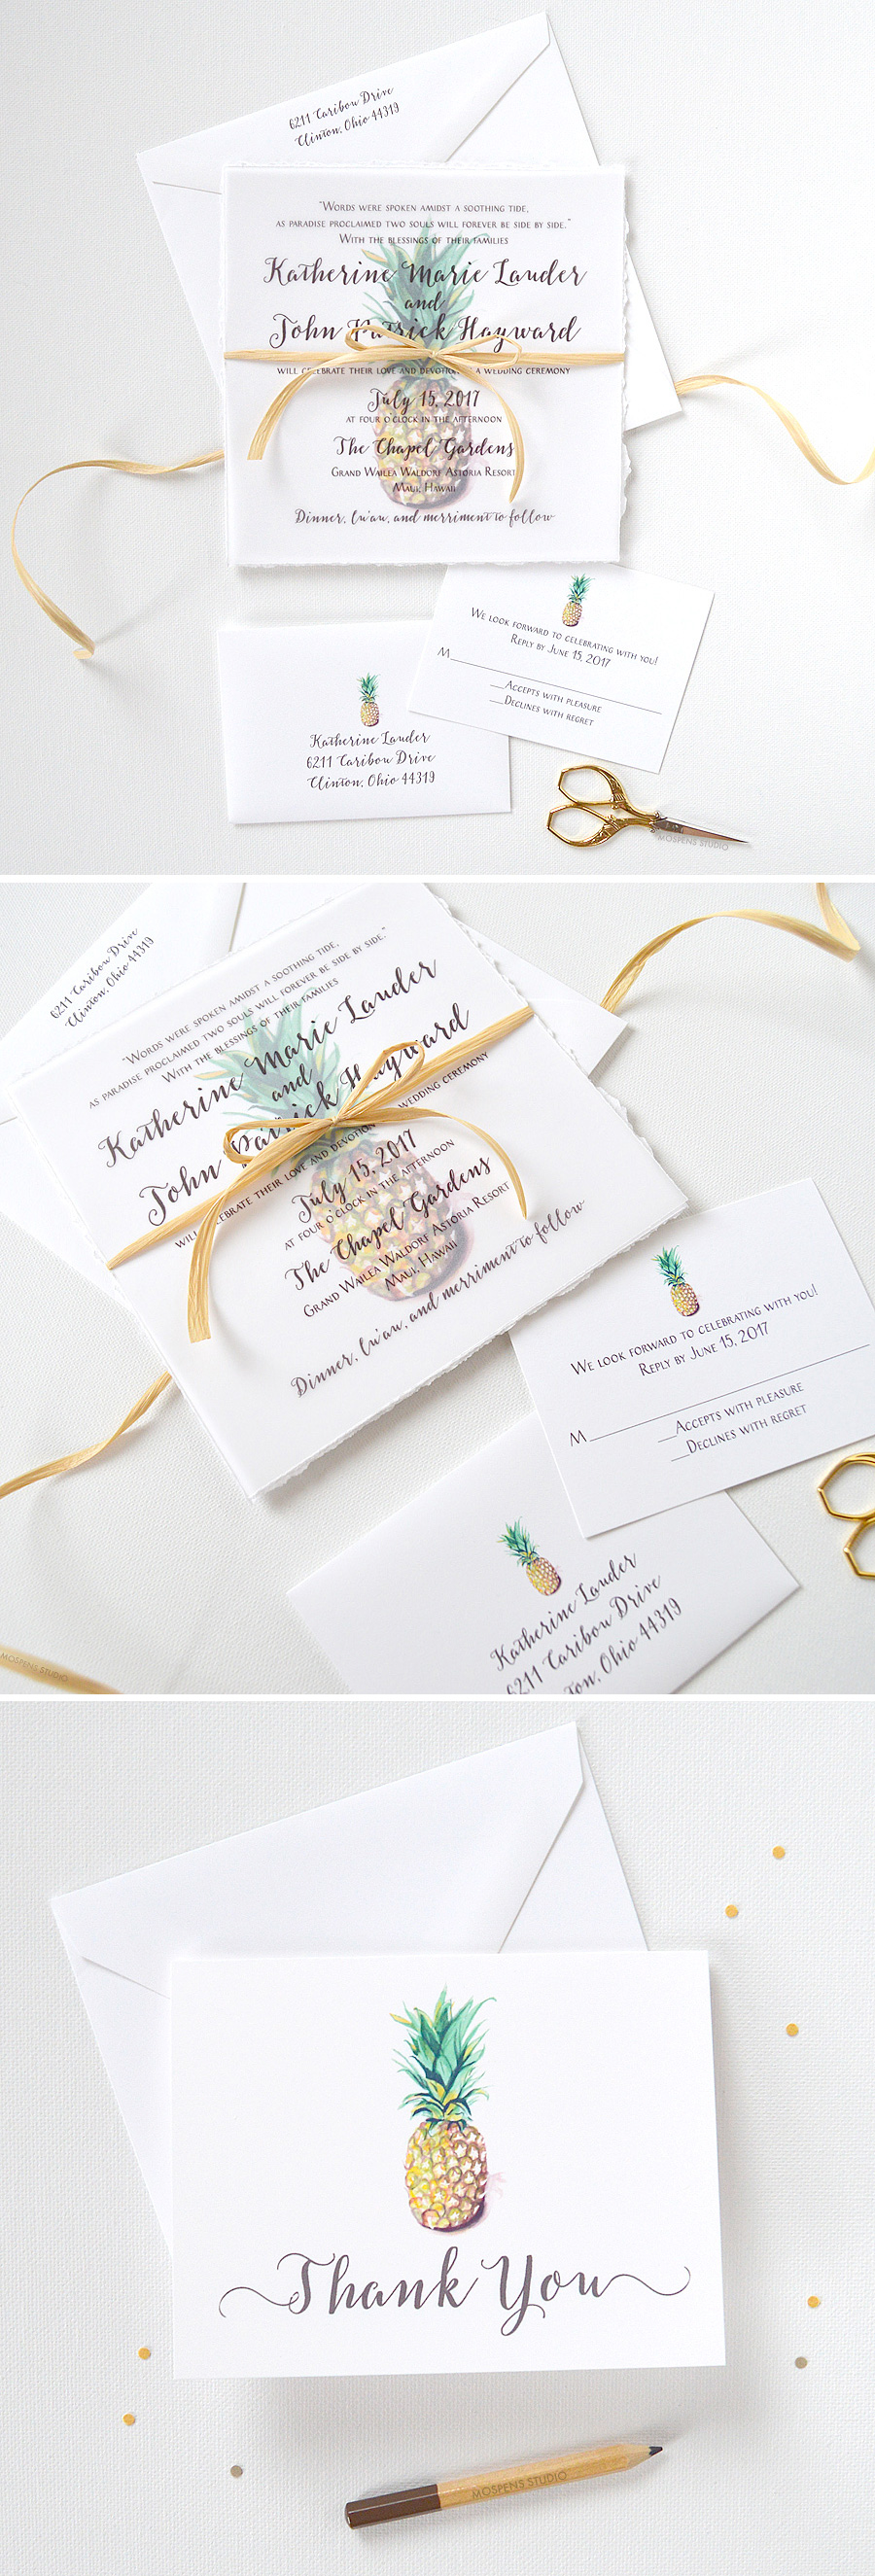 6211 Caribou Drive
Clinton, Ohio 44319
"Words were spoken amidst a soothing tide,
as paradise proclaimed two souls will forever be side by side."
With the blessings of their families
Katherine Marie Lauder
and
John Patrick Hayward
will celebrate their love and devotion a wedding ceremony
July 15, 2017
at four o'clock in the afternoon
The Chapel Gardens
Grand Wailea Waldorf Astoria Resort
Maui, Hawaii
Dinner, lu'au, and merriment to follow
We look forward to celebrating with you!
Reply by June 15, 2017
M
__Accepts with pleasure
__Declines with regret
Katherine Lauder
6211 Caribou Drive
Clinton, Ohio 44319
MOSPENS STUDIO
6211 Caribou Drive
Clinton, Ohio 44319
"Words were spoken amidst a soothing tide,
as paradise proclaimed two souls will forever be side by side."
With the blessings of their families
Katherine Marie Lauder
and
John Patrick Hayward
will celebrate their love and devotion wedding ceremony
July 15, 2017
at four o'clock in the afternoon
The Chapel Gardens
Grand Wailea Waldorf Astoria Resort
Maui, Hawaii
Dinner, lu'au, and merriment to follow
We look forward to celebrating with you!
Reply by June 15, 2017
M
__Accepts with pleasure
__Declines with regret
Katherine Lauder
6211 Caribou Drive
ton, Ohio 44319
MOSPENS STUDIO
Thank You
MOSPENS STUDIO